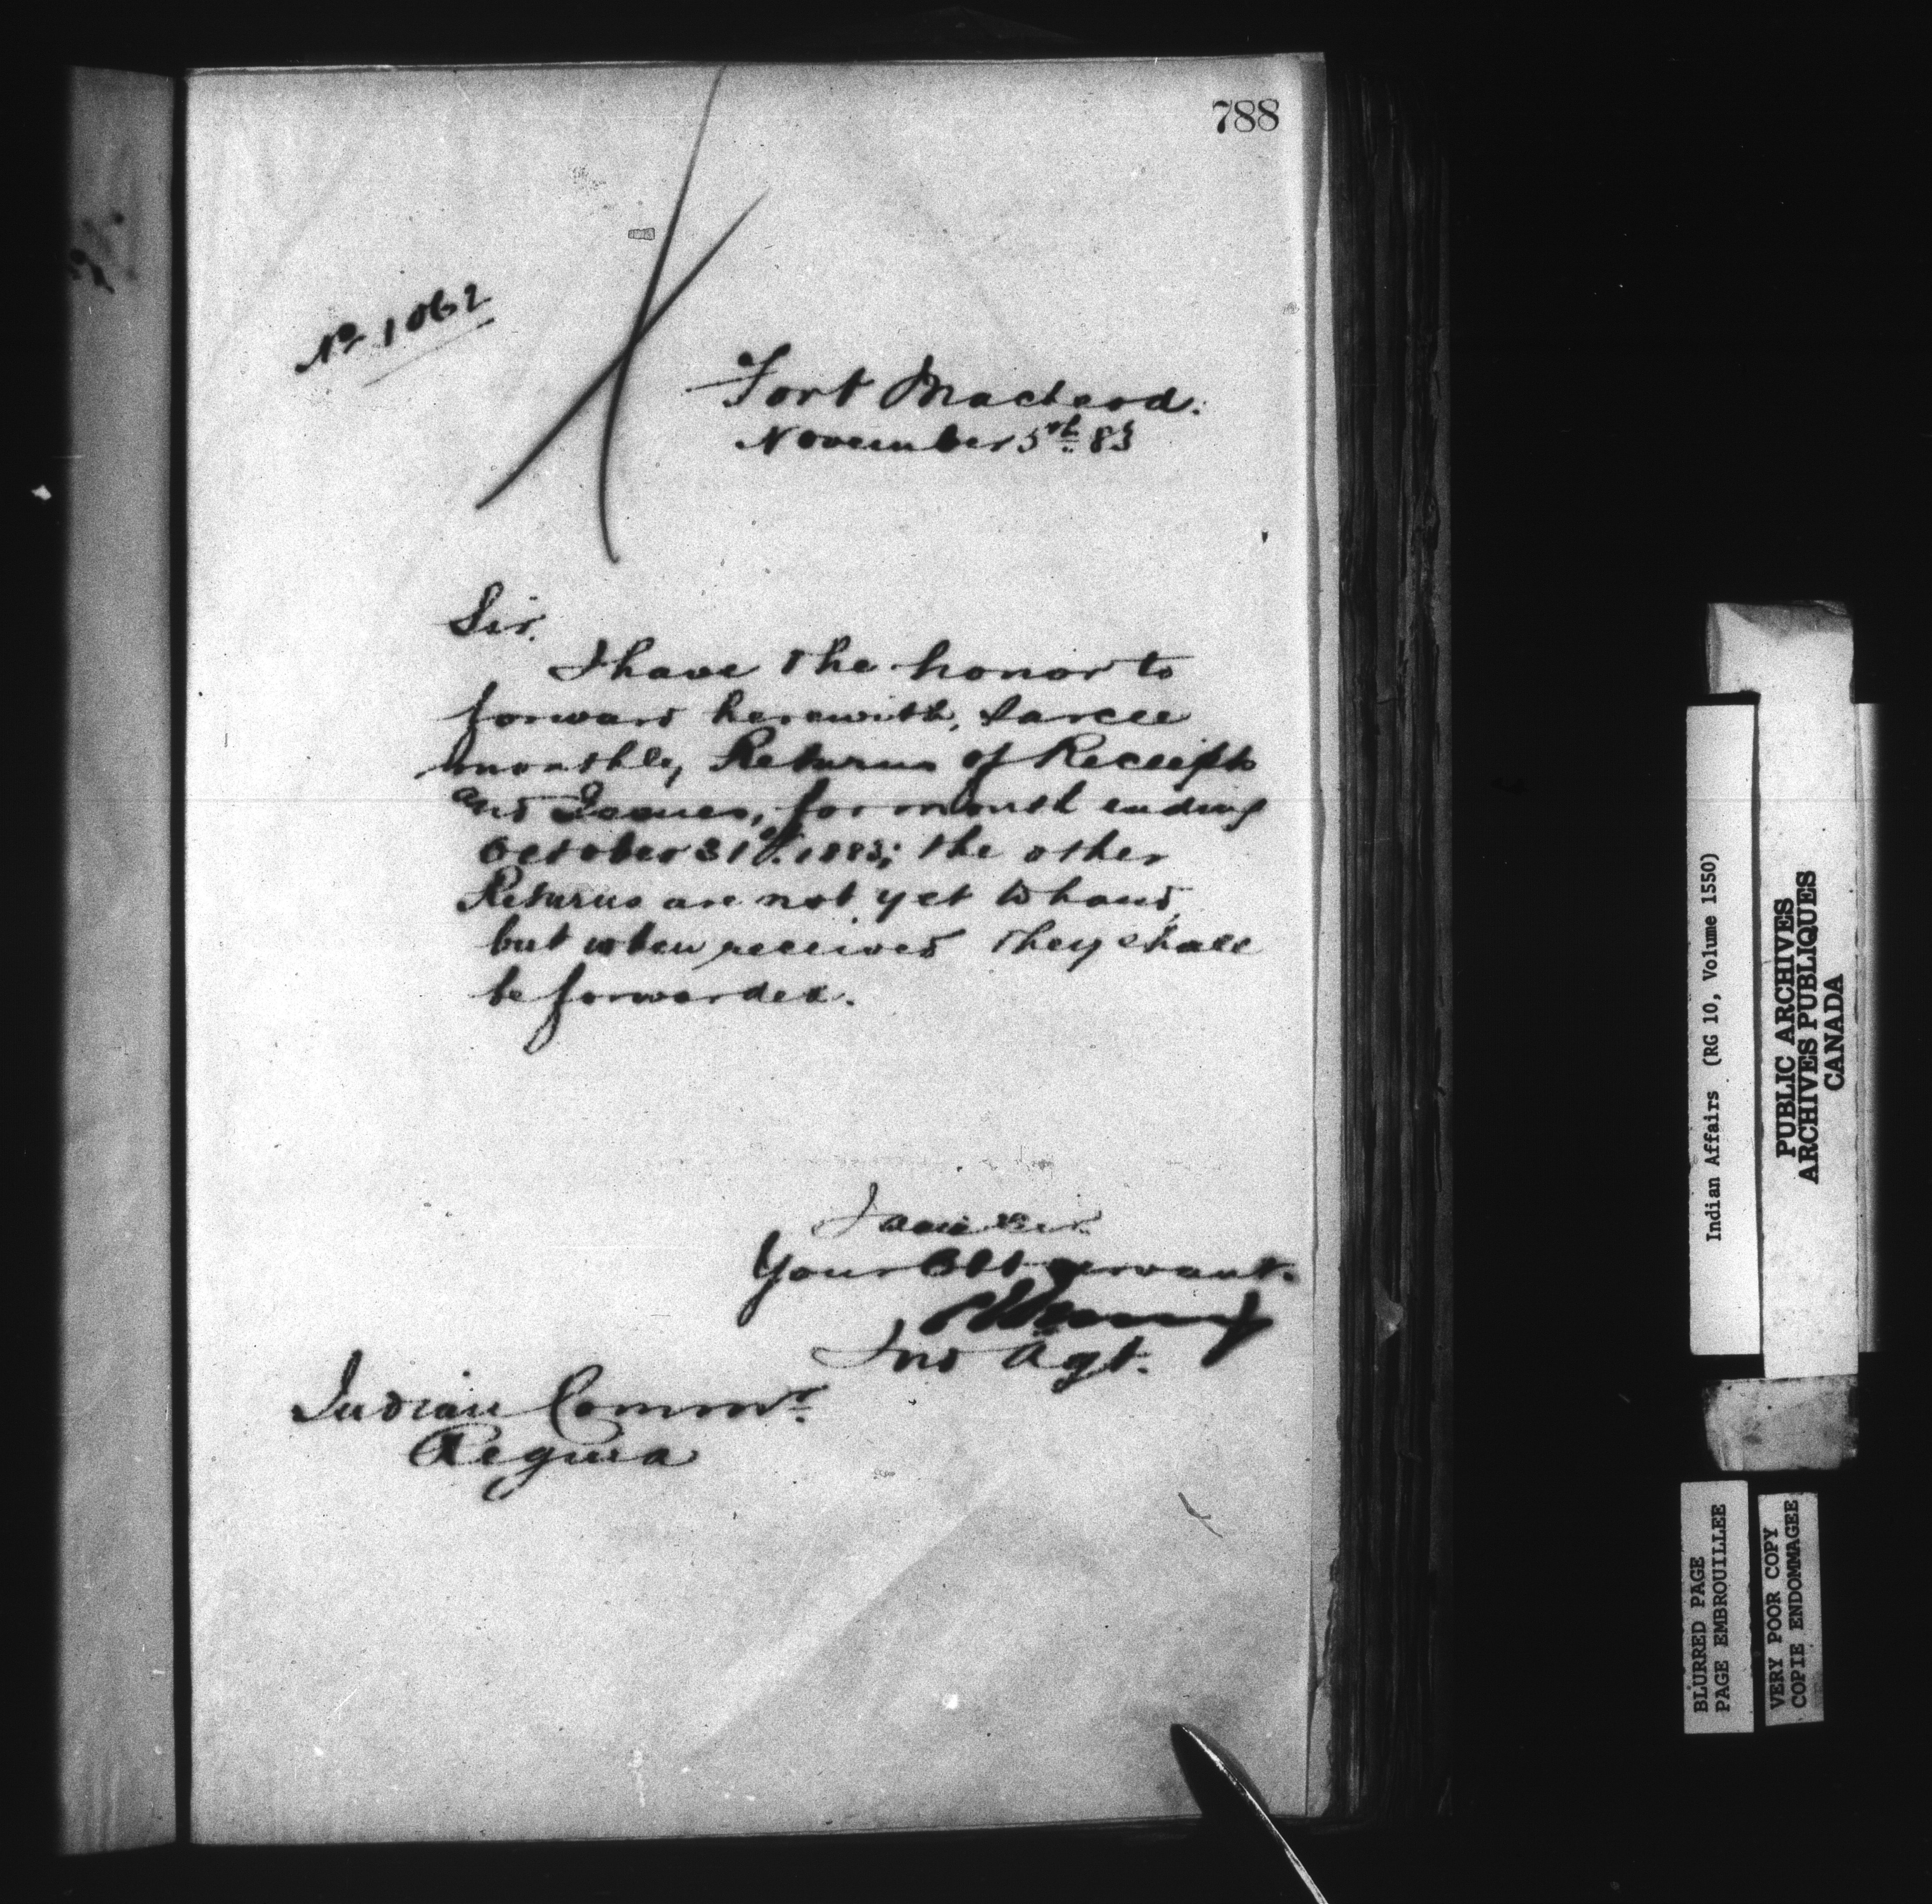 788
No 1062
Fort Macleod.
November 5th 83
Sir.
I have the honor to
forward herewith, Sarcee
monthly Returns of Receipts
and Issues, for month ending
October 31st 1883; the other
Returns are not yet to hand,
but when received they shall
be forwarded.
I am Sir
Your Obt servant.
Ind Agt.
Indian Commr.
Regina
Indian Affairs (RG 10, Volume 1550)
PUBLIC ARCHIVES
ARCHIVES PUBLIQUES
CANADA
BLURRED PAGE
PAGE EMBROUILLEE
VERY POOR COPY
COPIE ENDOMMAGEE